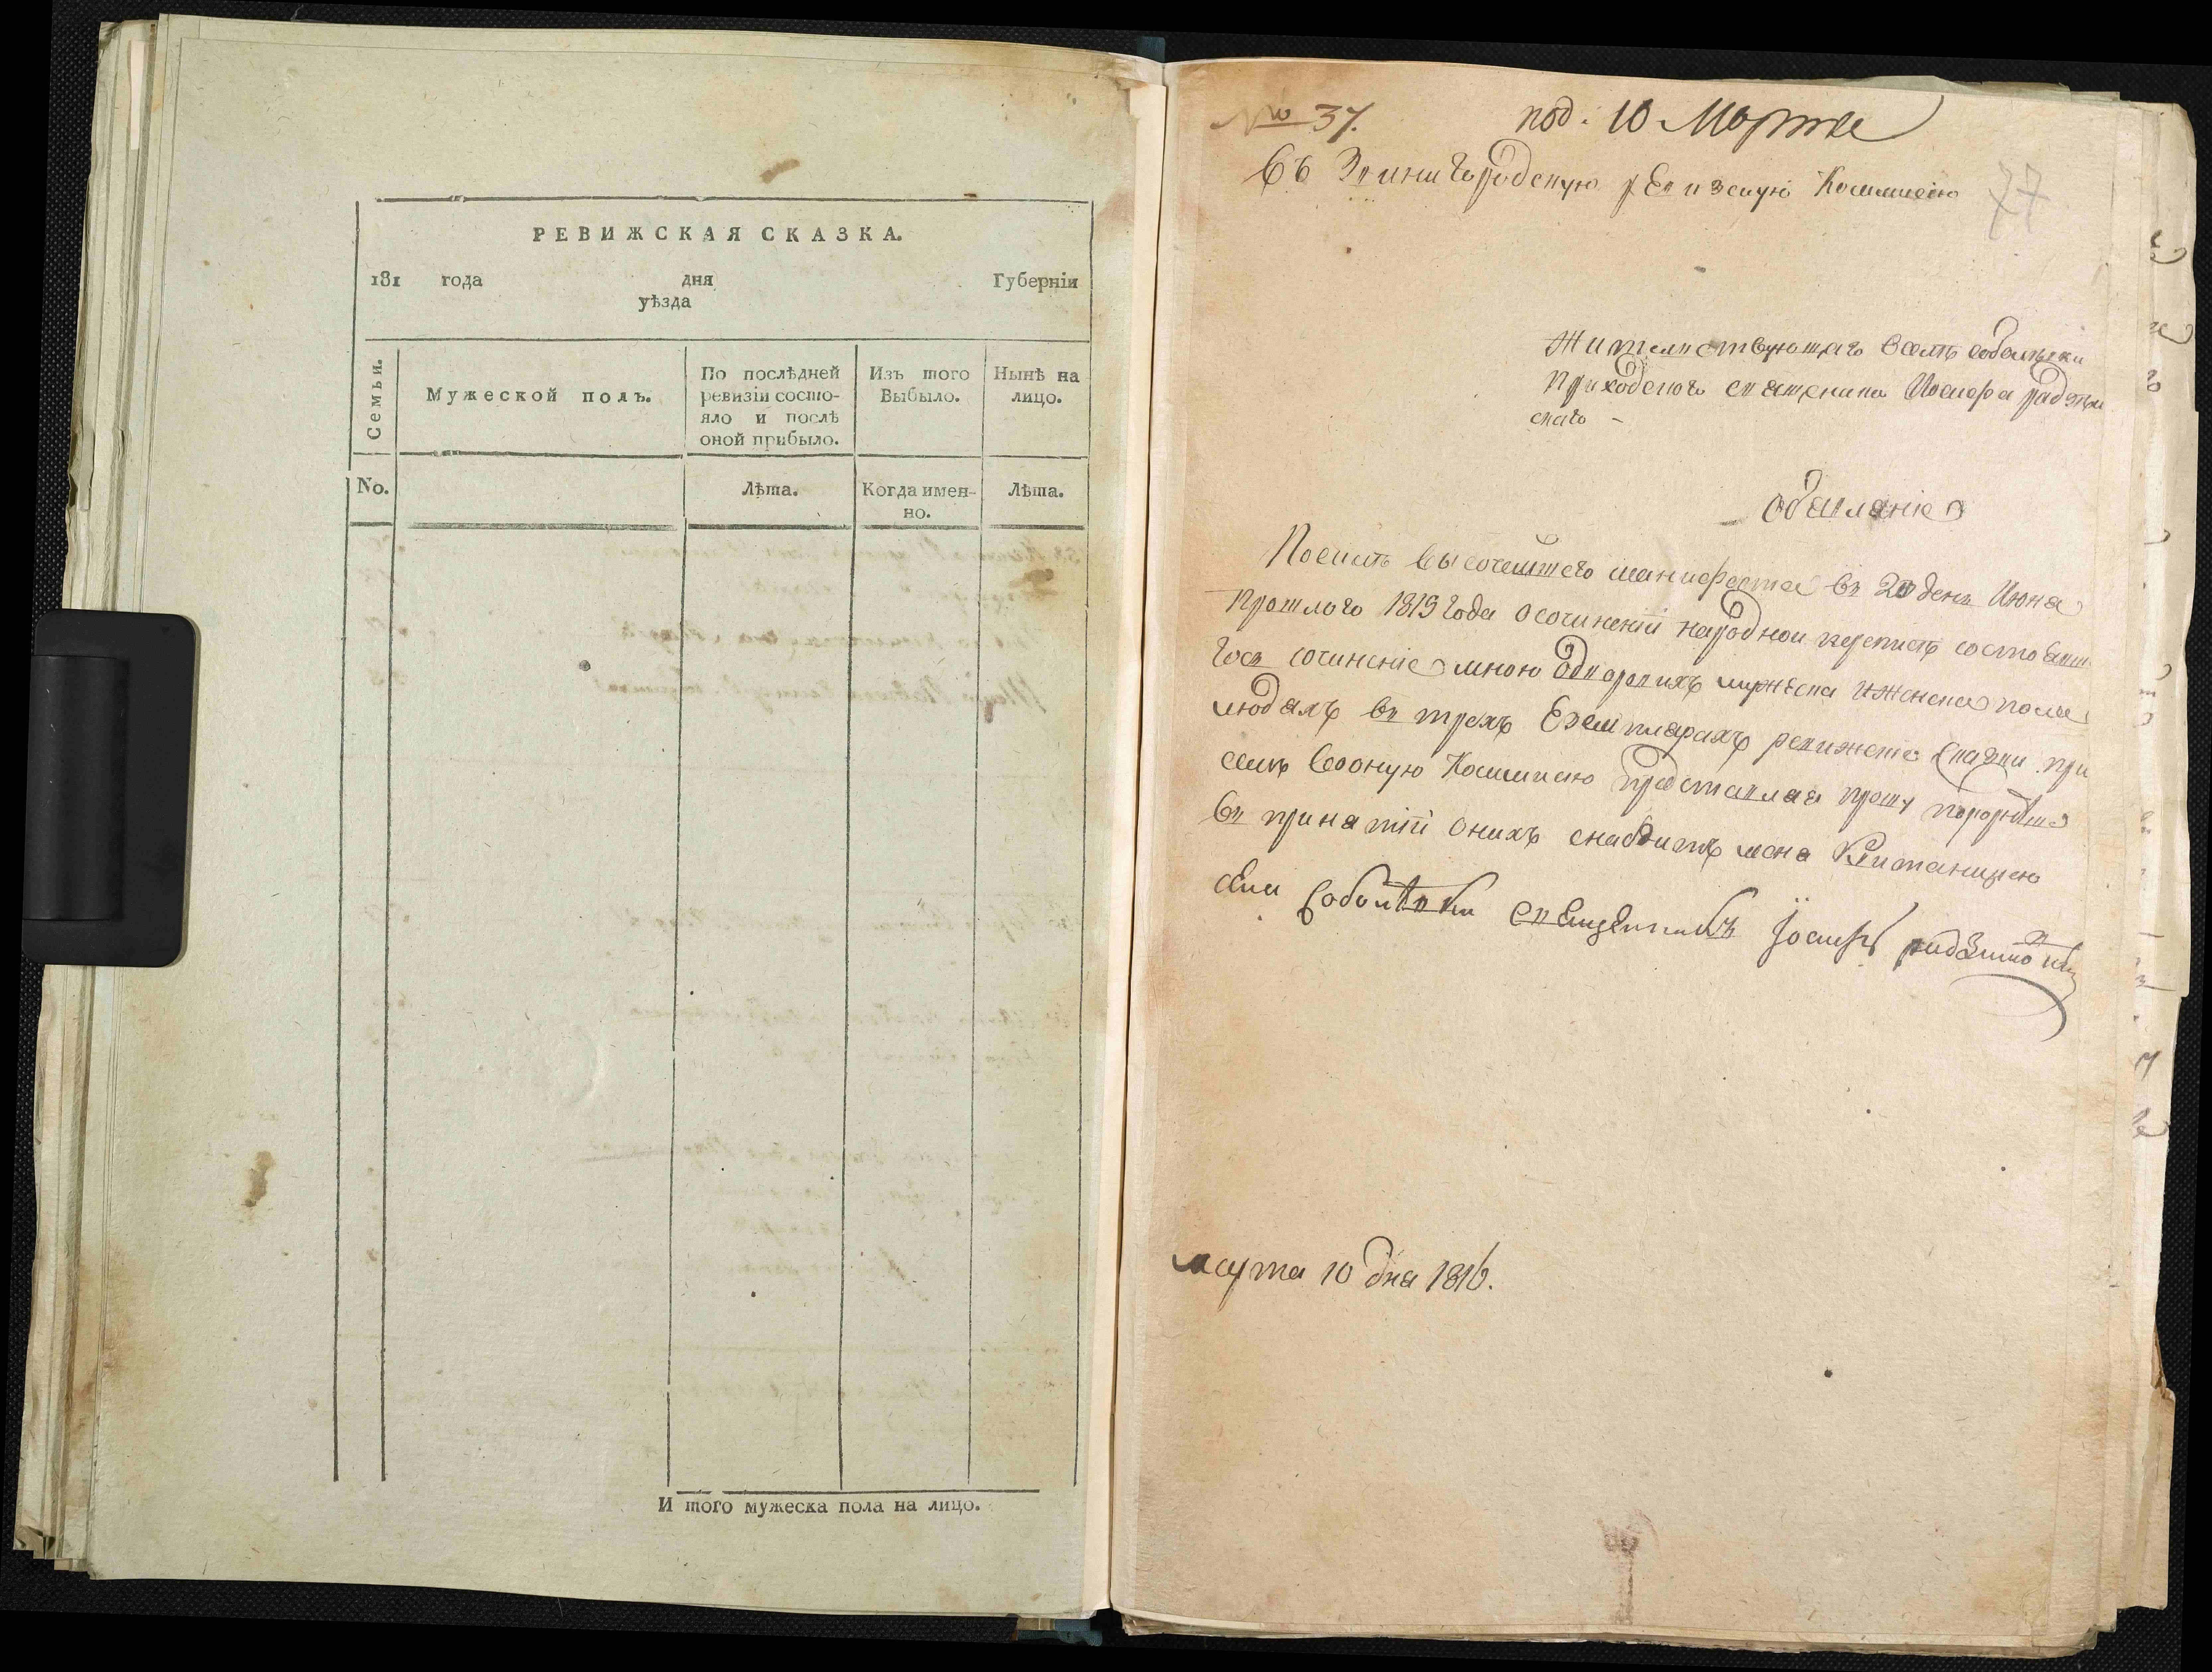 РЕВИЖСКАЯ СКАЗКА.
181 года дня Губерніи
уѣзда
Семьи.
Мужеской полъ.
По послѣдней
ревизіи состо-
яло и послѣ
оной прибыло.
Изъ того
Выбыло.
Нынѣ на
лицо.
No.
Лѣта.
Когда имен-
но.
Лѣта.
И того мужеска пола на лицо.
№ 37. под. 10 Марта
77
Въ Звинигородскую ревизскую Коммисію
Жителствующаго вселѣ соболѣвки
Приходского священика Иосифа радзѣи
скаго
обявленіе
Посилѣ высочешего манифеста въ 20 день Июня
прошлаго 1815 года осочиненіи народной переписѣ состоявш
гося сочиненіе мною одворвихъ мужеска иженска пола
людяхъ въ трехъ Екземпларахъ ревижскіе сказки при
семъ вооную Коммисію представляя прошу
въ принятіи онихъ снабдить мене Квитанциею
села Соболѣвки священникъ Іосифъ
марта 10 дня 1816.